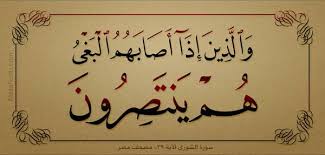 وَالَّذِينَ إِذَا أَصَابَهُمُ الْبَغْىُ
هُمْ يَنتَصِرُونَ
سورة الشورى الآية ٣٩، مصحف مصر